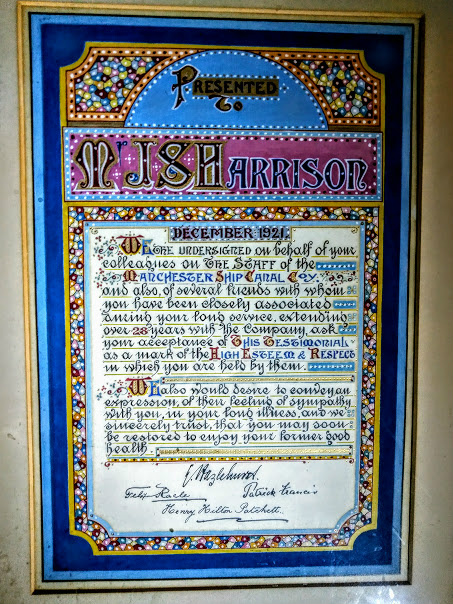 PRESENTED
TO
Mr J S HARRISON
DECEMBER 1921.
WE, THE UNDERSIGNED on behalf of your
colleagues on THE STAFF of the
MANCHESTER SHIP CANAL COY.
and also, of several friends with whom
you have been closely associated
during your long service, extending
over 28 years with the Company, ask
your acceptance of THIS TESTIMONIAL
as a mark of the HIGH ESTEEM & RESPECT
in which you are held by them.
WE also would desire to convey an
expression, of their feeling of sympathy
with you, in your long illness, and we
sincerely trust, that you may soon
be restored to enjoy your former good
health.
Hazlehurst.
Felix Patrick Francis
Henry Hilton Patchett.